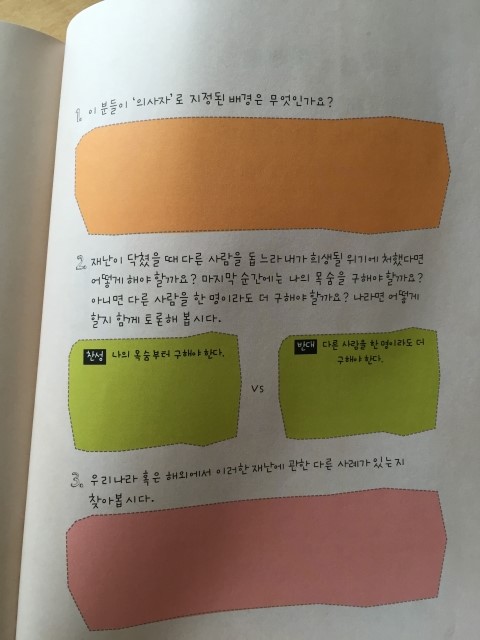 1. 이 분들이 '의사자'로 지정된 배경은 무엇인가요?
2. 재난이 닥쳤을 때 다른 사람을 돕느라 내가 희생될 위기에 처했다면
어떻게 해야 할까요? 마지막 순간에는 나의 목숨을 구해야 할까요?
아니면 다른 사람을 한 명이라도 더 구해야 할까요? 나라면 어떻게
할지 함께 토론해 봅시다.
찬성 나의 목숨부터 구해야 한다.
vs
반대 다른 사람을 한 명이라도 더
구해야 한다.
3. 우리나라 혹은 해외에서 이러한 재난에 관한 다른 사례가 있는지
찾아봅시다.